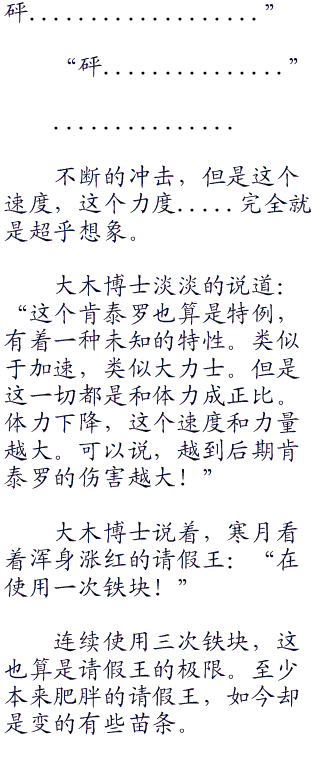 砰...................”
“砰...............”
...............
不断的冲击，但是这个
速度，这个力度.....完全就
是超乎想象。
大木博士淡淡的说道：
“这个肯泰罗也算是特例，
有着一种未知的特性。类似
于加速，类似大力士。但是
这一切都是和体力成正比。
体力下降，这个速度和力量
越大。可以说，越到后期肯
泰罗的伤害越大！”
大木博士说着，寒月看
着浑身涨红的请假王：“在
使用一次铁块！”
连续使用三次铁块，这
也算是请假王的极限。至少
本来肥胖的请假王，如今却
是变的有些苗条。